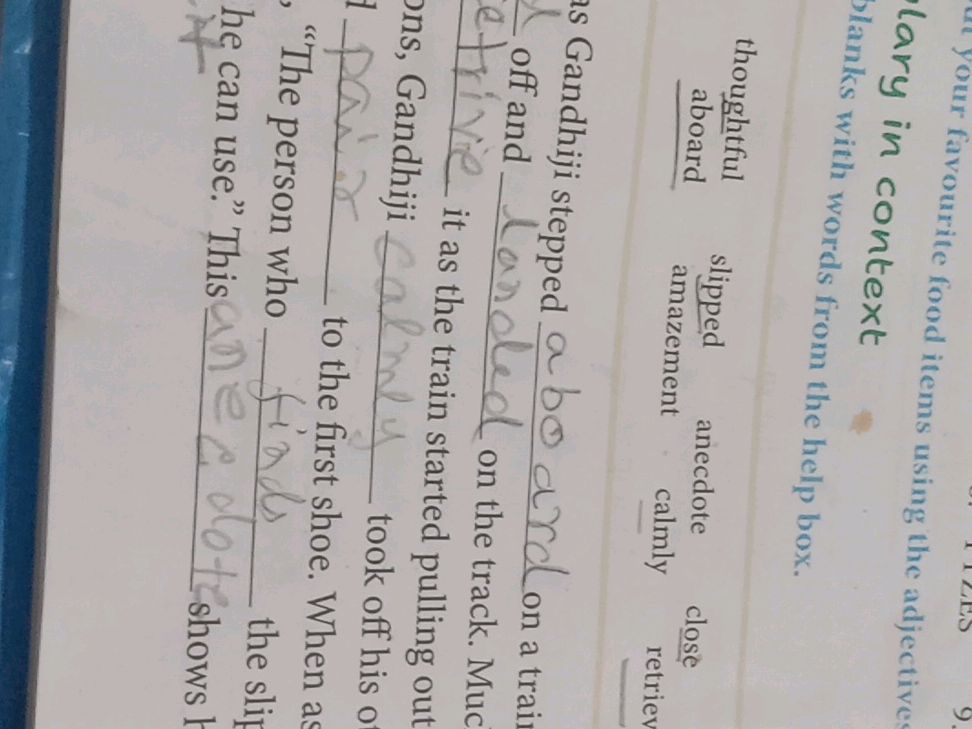 your favourite food items using the adjectives
lary in context
blanks with words from the help box.
thoughtful slipped anecdote close
aboard amazement calmly retriev
as Gandhiji stepped aboard on a train
off and landed on the track. Muc
it as the train started pulling out
ons, Gandhiji calmly took off his ot
to the first shoe. When as
, “The person who finds the slip
he can use.” This anecdote shows h